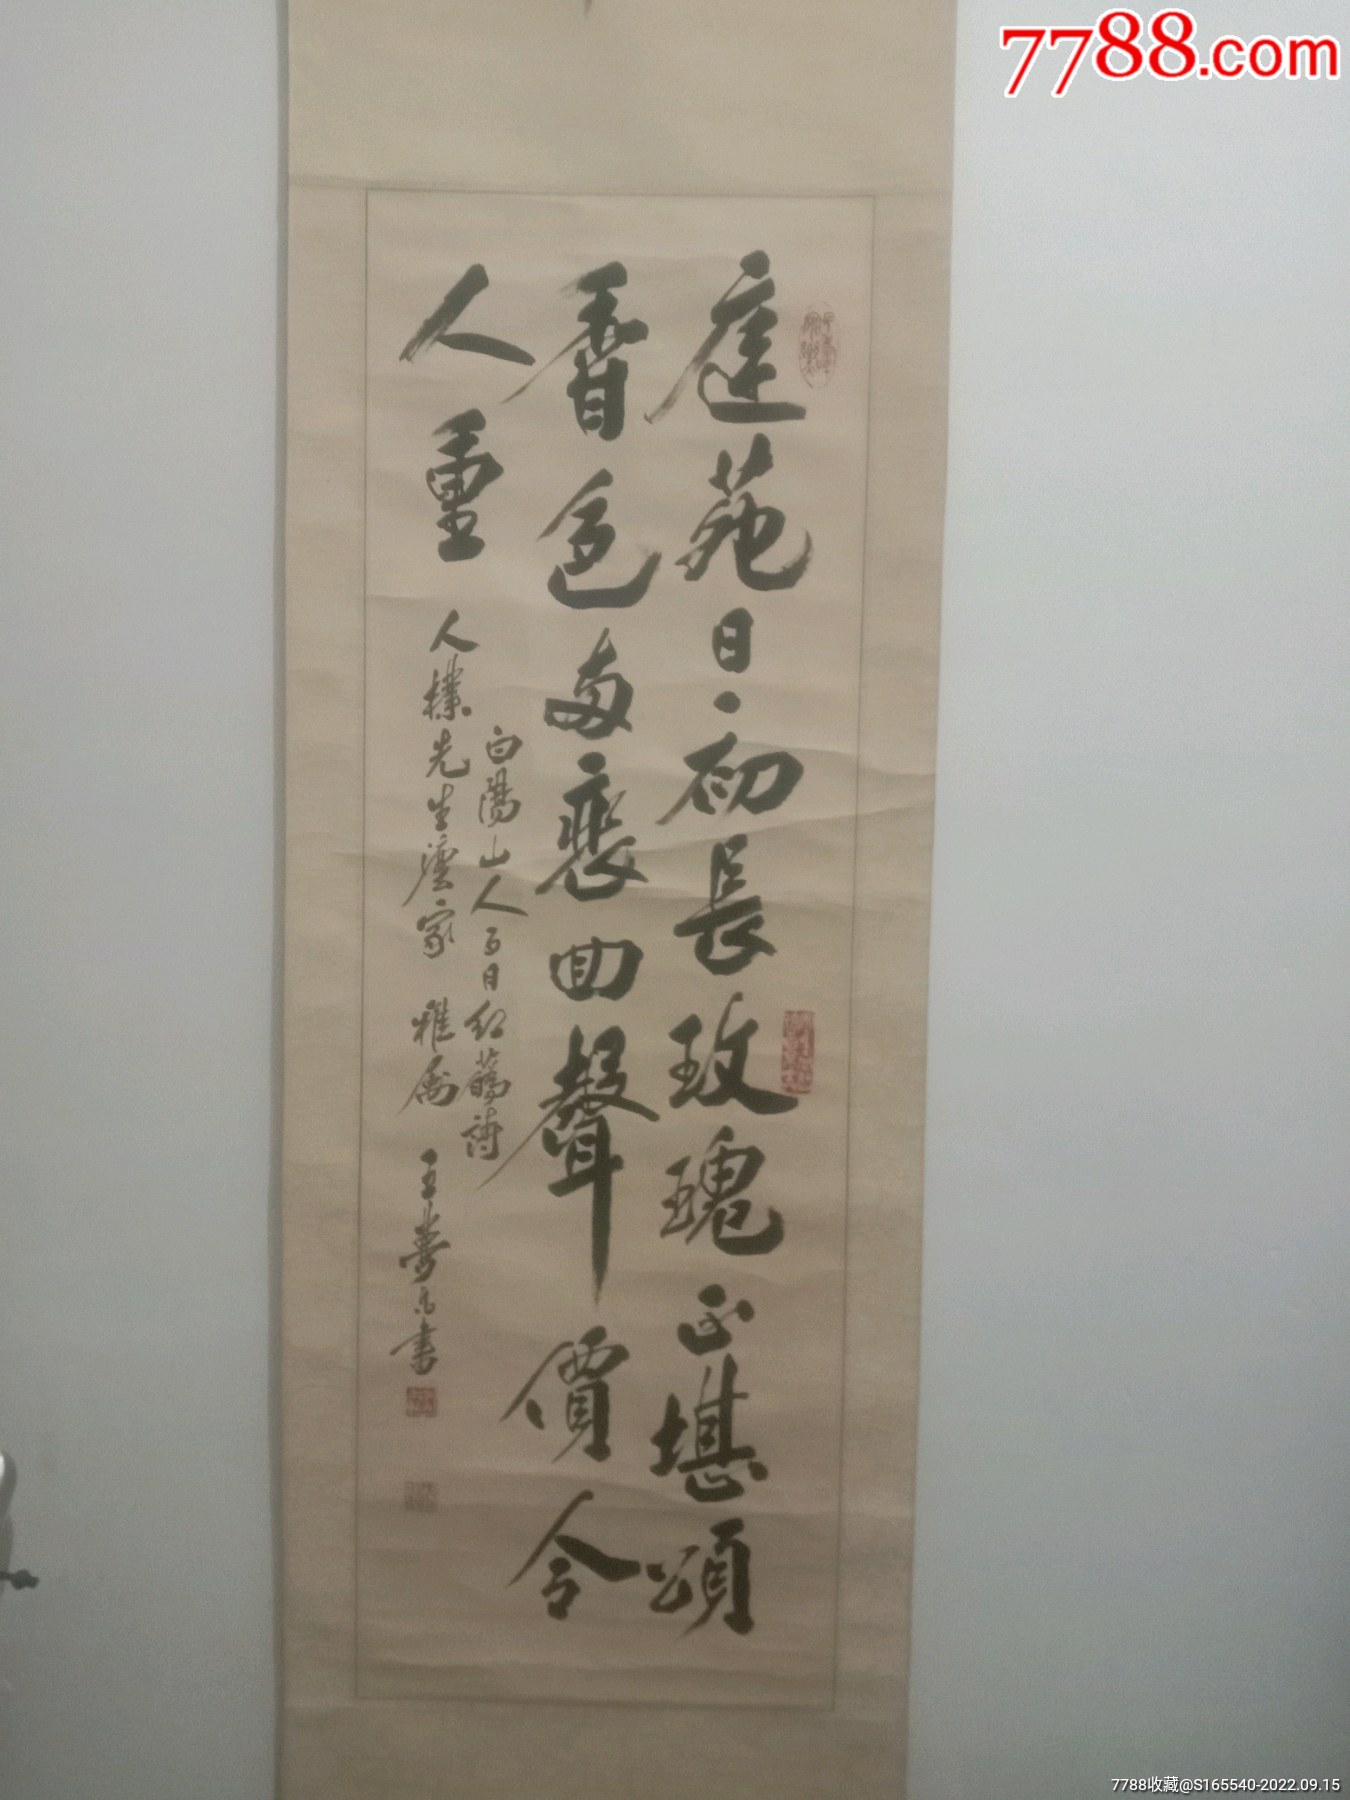 7788.com
庭苑日、初長玫瑰正堪頌
香色多惹曲聲價令
人重
白陽山人百日紅薇詩
人樸先生 家 雅屬
王夢 書
7788收藏@S165540-2022.09.15